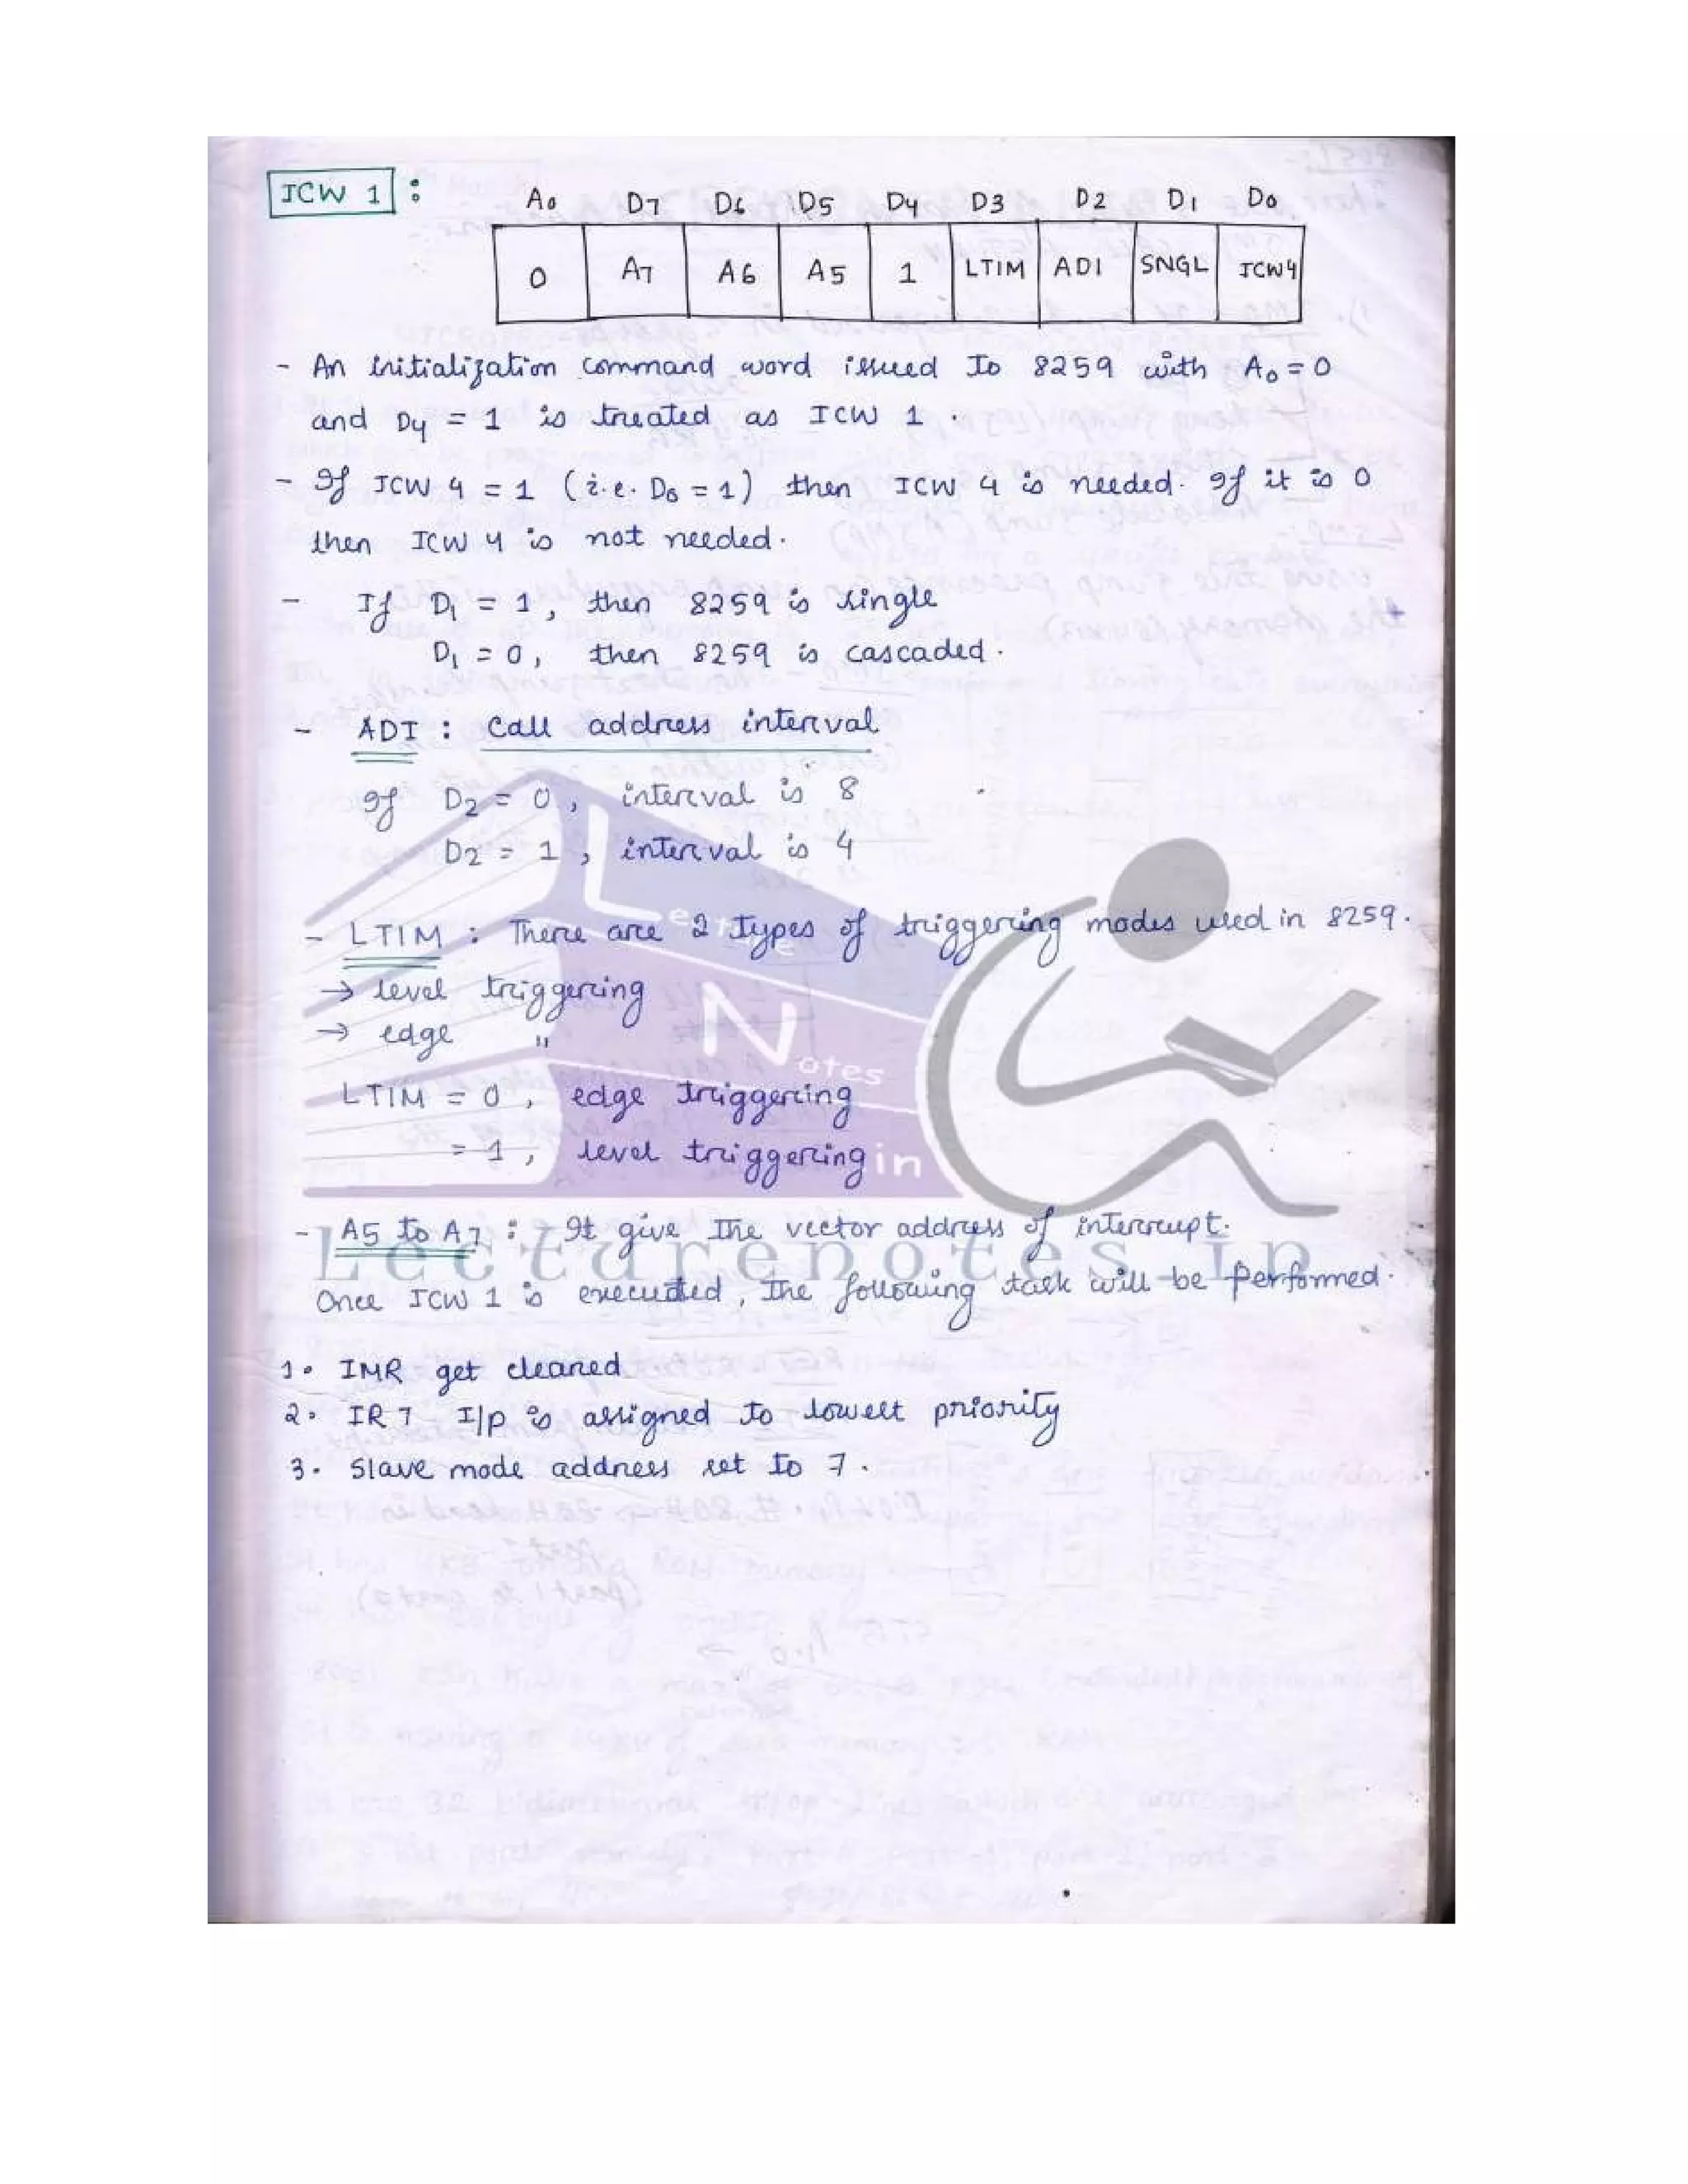 ICW 1 :
A0 D7 D6 D5 D4 D3 D2 D1 D0
0 A7 A6 A5 1 LTIM ADI SNGL ICW4
- An initialization command word issued to 8259 with A0 = 0
and D4 = 1 is treated as ICW 1 .
- If ICW 4 = 1 (i.e. D0 = 1) then ICW 4 is needed. If it is 0
then ICW 4 is not needed.
- If D1 = 1 , then 8259 is single
D1 = 0 , then 8259 is cascaded .
- ADI : Call address interval
If D2 = 0 , interval is 8
D2 = 1 , interval is 4
- LTIM : There are 2 types of triggering modes used in 8259 .
→ level triggering
→ edge "
LTIM = 0 , edge triggering
= 1 , level triggering
- A5 to A7 : It give the vector address of interrupt.
Once ICW 1 is executed , the following task will be performed .
1. IMR get cleared
2. IR 7 I/p is assigned to lowest priority
3. Slave mode address set to 7 .
Lecture
Notes
in
Lecturenotes.in